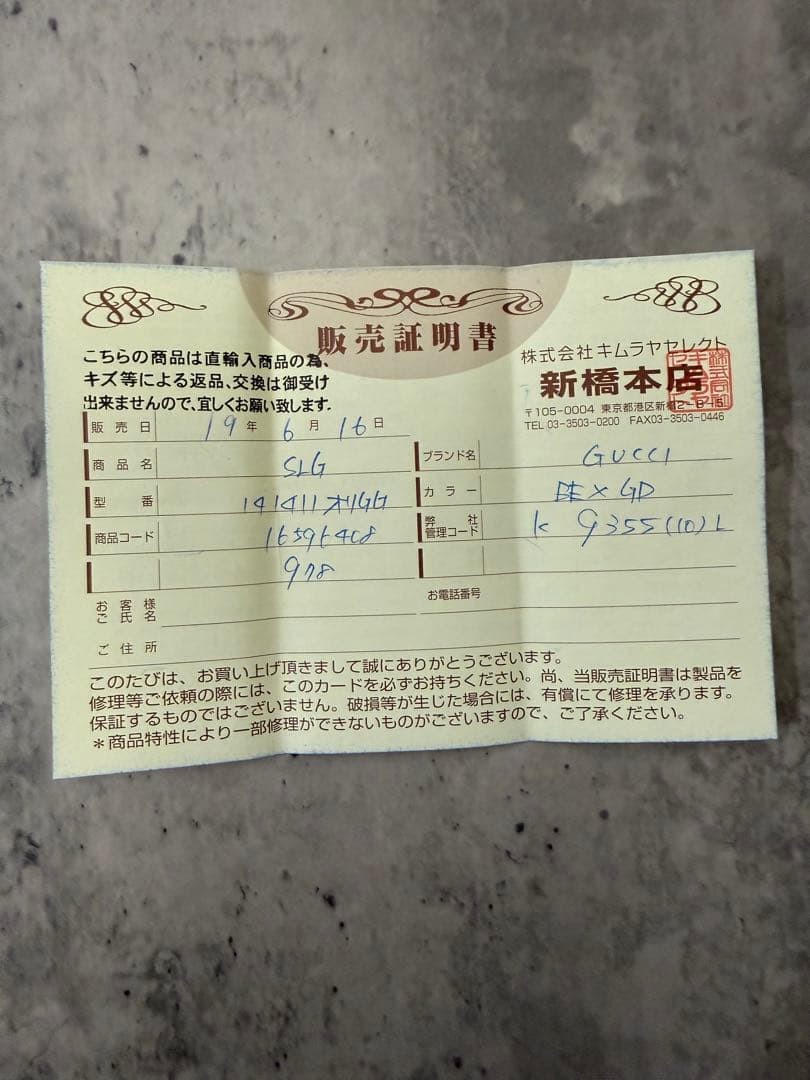 販売証明書
こちらの商品は直輸入商品の為、
キズ等による返品、交換は御受け
出来ませんので、宜しくお願い致します。
株式会社キムラヤセレクト
新橋本店
〒105-0004 東京都港区新橋2-8-5
TEL 03-3503-0200 FAX03-3503-0446
販売日 19年 6月 16日
商品名 SLG
ブランド名 GUCCI
型番 141411 オリGG
カラー BE×GD
商品コード
弊社管理コード K 9355(10)L
978
お客様ご氏名
お電話番号
ご住所
このたびは、お買い上げ頂きまして誠にありがとうございます。
修理等ご依頼の際には、このカードを必ずお持ちください。尚、当販売証明書は製品を
保証するものではございません。破損等が生じた場合には、有償にて修理を承ります。
＊商品特性により一部修理ができないものがございますので、ご了承ください。